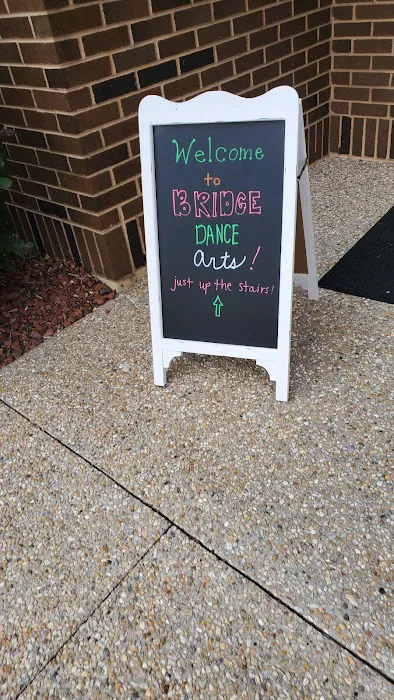 Welcome
to
BRIDGE
DANCE
Arts!
just up the stairs!
↑